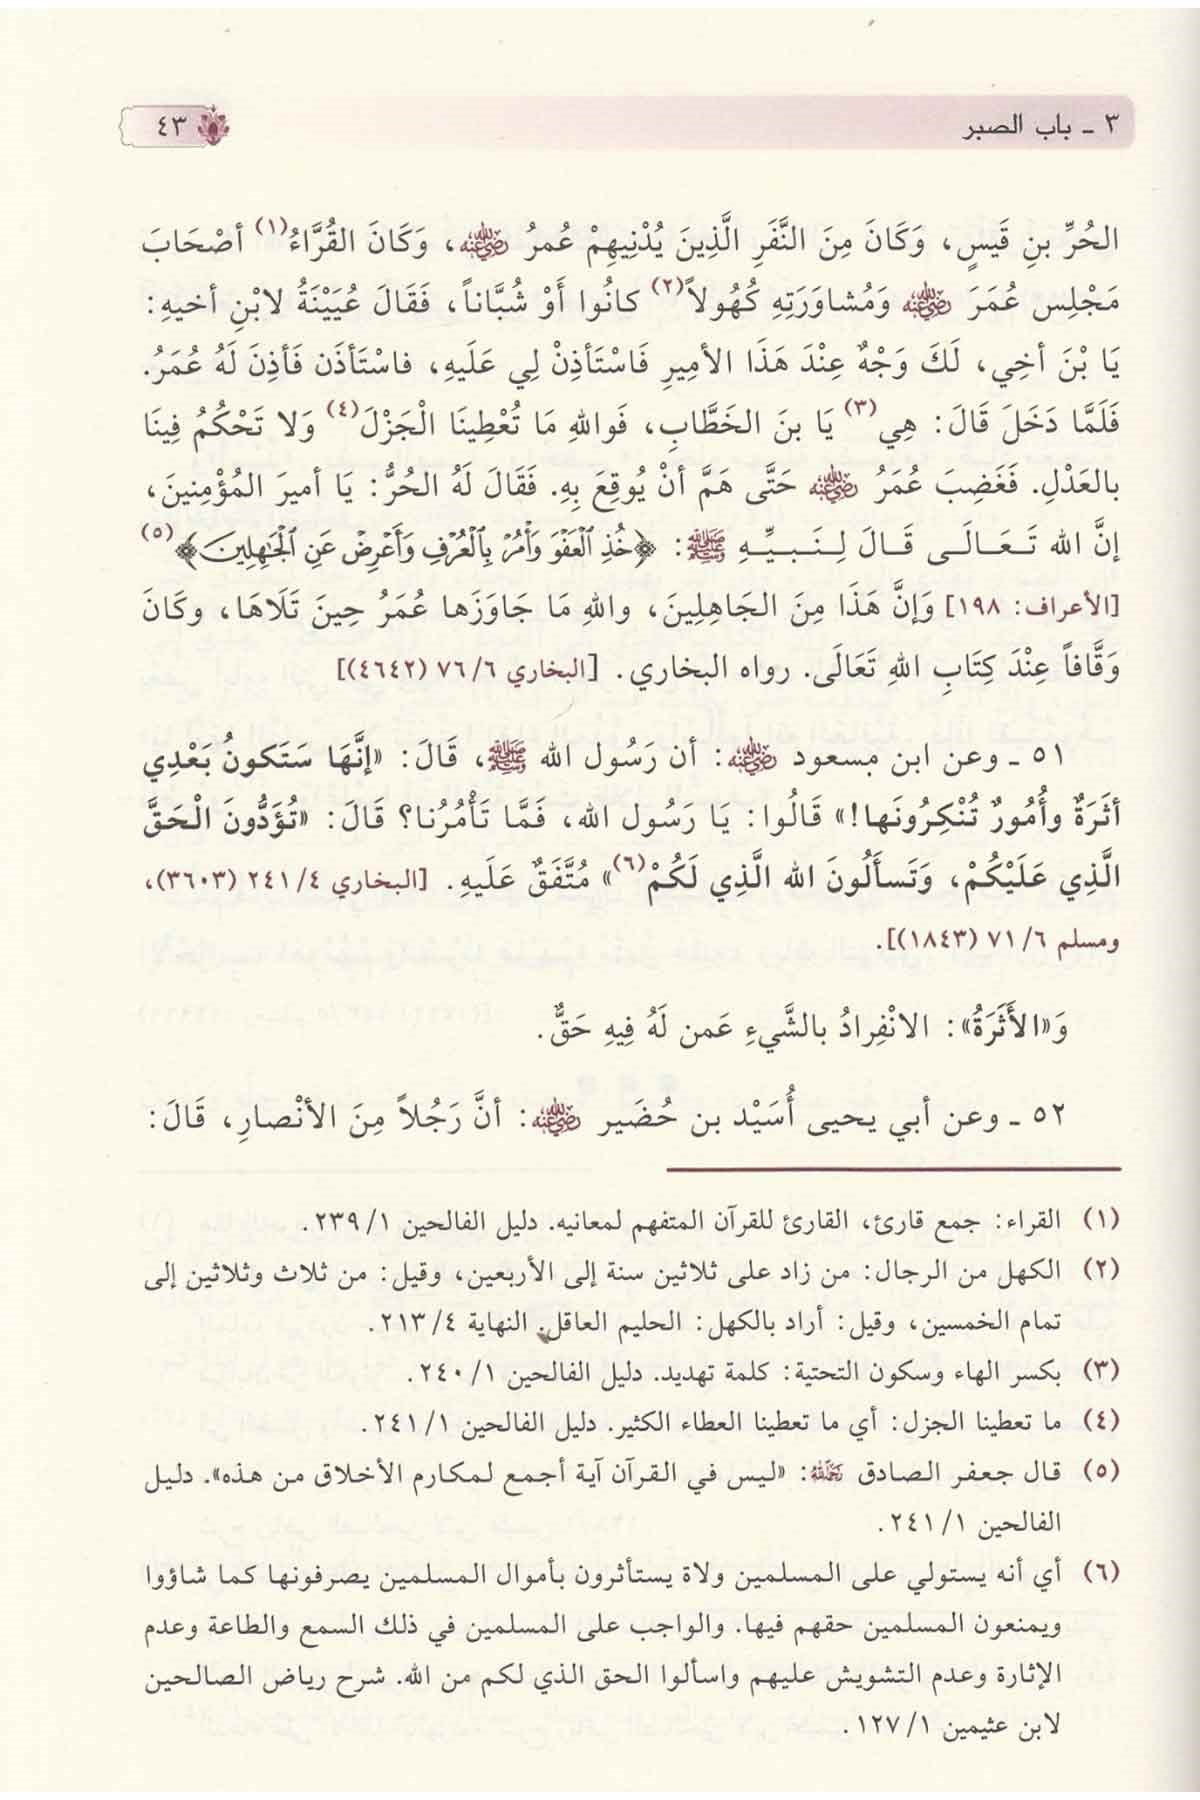 ٣ - باب الصبر
٤٣
الحُرِّ بنِ قَيسٍ، وَكَانَ مِنَ النَّفَرِ الَّذِينَ يُدْنِيهِمْ عُمرُ رضي الله عنه، وَكَانَ القُرَّاءُ(١) أصْحَابَ
مَجْلِس عُمَرَ رضي الله عنه وَمُشاوَرَتِهِ كُهُولاً(٢) كانُوا أَوْ شُبَّاناً، فَقَالَ عُيَيْنَةُ لابْنِ أخيهِ:
يَا بْنَ أخِي، لَكَ وَجْهٌ عِنْدَ هَذَا الأمِيرِ فَاسْتَأذِنْ لِي عَلَيهِ، فاسْتَأذَن فَأذِنَ لَهُ عُمَرُ.
فَلَمَّا دَخَلَ قَالَ: هِي(٣) يَا بنَ الخَطَّابِ، فَواللهِ مَا تُعْطِينَا الْجَزْلَ(٤) وَلا تَحْكُمُ فِينَا
بالعَدْلِ. فَغَضِبَ عُمَرُ رضي الله عنه حَتَّى هَمَّ أنْ يُوقِعَ بِهِ. فَقَالَ لَهُ الحُرُّ: يَا أميرَ المُؤْمِنينَ،
إنَّ الله تَعَالَى قَالَ لِنَبيِّهِ ﷺ: ﴿خُذِ ٱلْعَفْوَ وَأْمُرْ بِٱلْعُرْفِ وَأَعْرِضْ عَنِ ٱلْجَٰهِلِينَ﴾(٥)
[الأعراف: ١٩٨] وَإنَّ هَذَا مِنَ الجَاهِلِينَ، واللهِ مَا جَاوَزَها عُمَرُ حِينَ تَلَاهَا، وكَانَ
وَقَّافاً عِنْدَ كِتَابِ اللهِ تَعَالَى. رواه البخاري. [البخاري ٧٦/٦ (٤٦٤٢)]
٥١ - وعن ابن مسعود رضي الله عنه: أن رَسُول الله ﷺ، قَالَ: «إنَّهَا سَتَكونُ بَعْدِي
أثَرَةٌ وأُمُورٌ تُنْكِرُونَها!» قَالُوا: يَا رَسُول الله، فَمَّا تَأْمُرُنا؟ قَالَ: «تُؤَدُّونَ الْحَقَّ
الَّذِي عَلَيْكُمْ، وَتَسأَلُونَ الله الَّذِي لَكُمْ(٦)» مُتَّفَقٌ عَلَيهِ. [البخاري ٢٤١/٤ (٣٦٠٣)،
ومسلم ٧١/٦ (١٨٤٣)].
وَ«الأَثَرَةُ»: الانْفِرادُ بالشَّيءِ عَمن لَهُ فِيهِ حَقٌّ.
٥٢ - وعن أبي يحيى أُسَيْد بن حُضَير رضي الله عنه: أنَّ رَجُلاً مِنَ الأنْصارِ، قَالَ:
(١) القراء: جمع قارئ، القارئ للقرآن المتفهم لمعانيه. دليل الفالحين ٢٣٩/١.
(٢) الكهل من الرجال: من زاد على ثلاثين سنة إلى الأربعين، وقيل: من ثلاث وثلاثين إلى
تمام الخمسين، وقيل: أراد بالكهل: الحليم العاقل. النهاية ٢١٣/٤.
(٣) بكسر الهاء وسكون التحتية: كلمة تهديد. دليل الفالحين ٢٤٠/١.
(٤) ما تعطينا الجزل: أي ما تعطينا العطاء الكثير. دليل الفالحين ٢٤١/١.
(٥) قال جعفر الصادق رحمه الله: «ليس في القرآن آية أجمع لمكارم الأخلاق من هذه». دليل
الفالحين ٢٤١/١.
(٦) أي أنه يستولي على المسلمين ولاة يستأثرون بأموال المسلمين يصرفونها كما شاؤوا
ويمنعون المسلمين حقهم فيها. والواجب على المسلمين في ذلك السمع والطاعة وعدم
الإثارة وعدم التشويش عليهم واسألوا الحق الذي لكم من الله. شرح رياض الصالحين
لابن عثيمين ١٢٧/١.